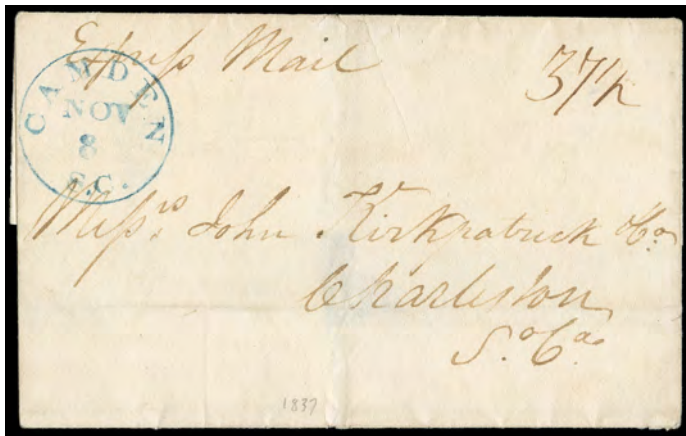 Express Mail
37½
CAMDEN
NOV
8
S.C.
Messrs. John Kirkpatrick & Co
Charleston
So. Ca.
1837